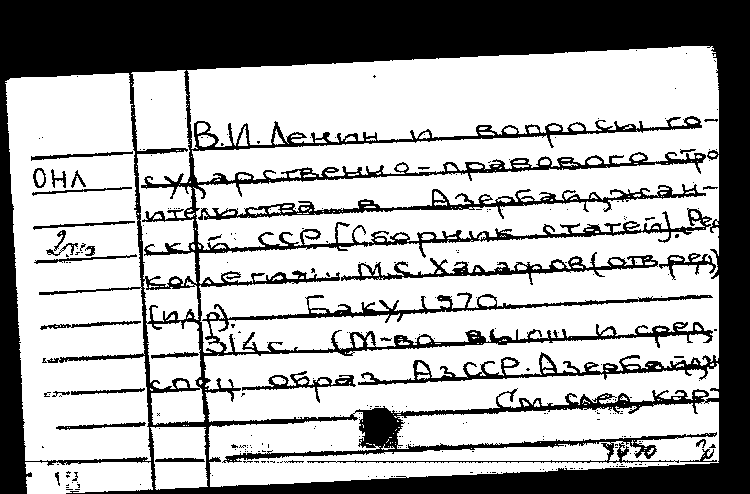 В.И. Ленин и вопросы го-
ОНЛ
сударственно-правового стро
ительства в Азербайджан-
2экз
ской ССР. [Сборник статей]. Ред
коллегия: М.С. Халафов (отв. ред)
[и др].  Баку, 1970.
314 с. (М-во высш и сред.
спец. образ АзССР. Азербайдж
См. след. кар-